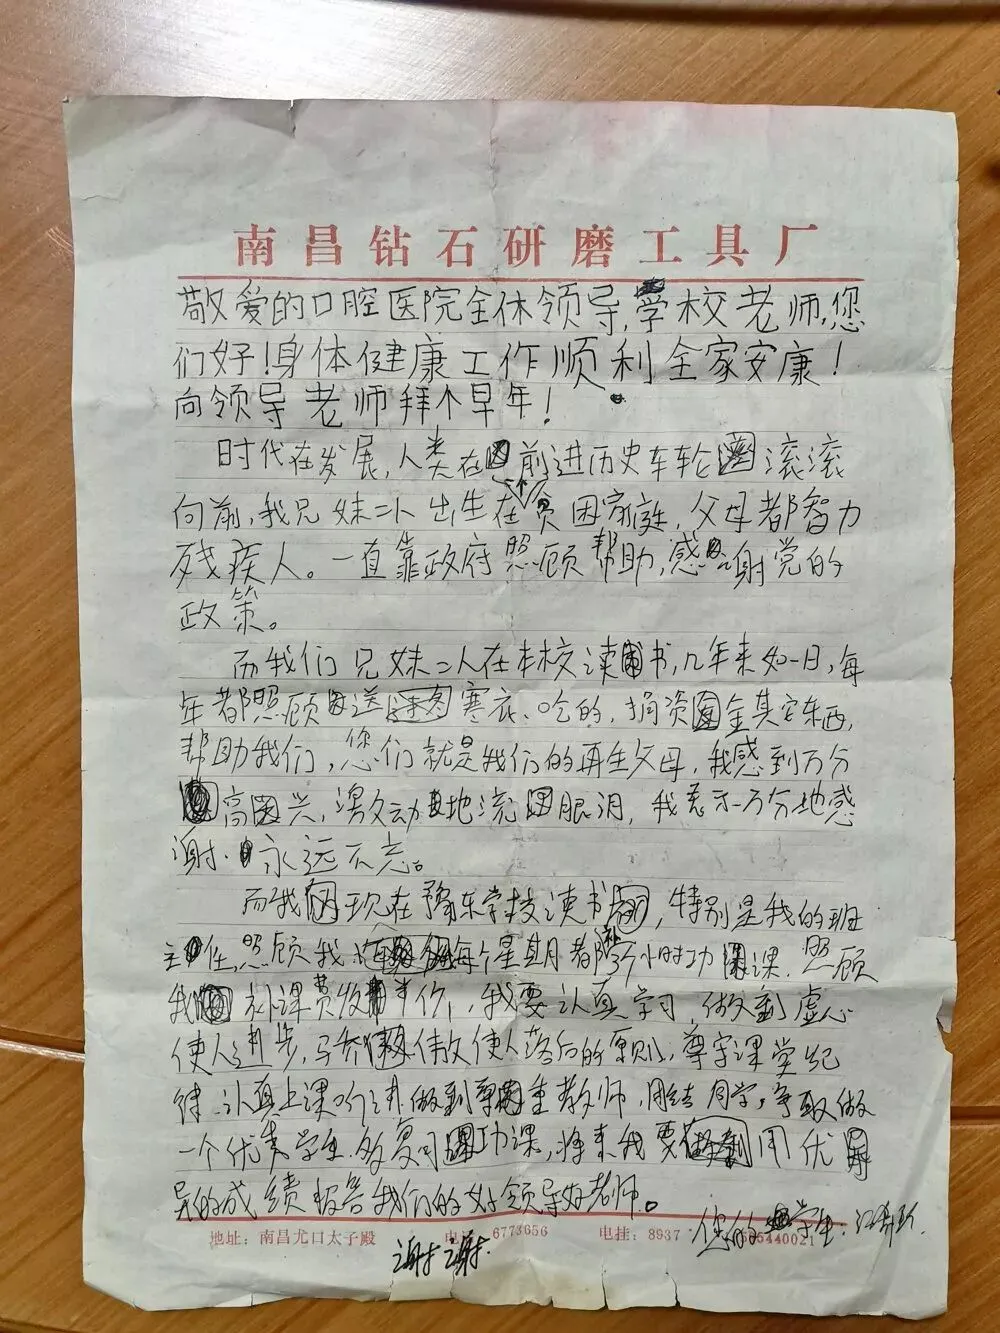 南昌钻石研磨工具厂
敬爱的口腔医院全休领导,学校老师,您
们好!身体健康工作顺利全家安康!
向领导老师拜个早年!
时代在发展,人类在前进历史车轮滚滚
向前,我兄妹二人出生在贫困家庭,父母都智力
残疾人。一直靠政府照顾帮助,感谢党的
政策。
而我们兄妹二人在本校读书,几年来如一日,每
年都照顾送寒衣、吃的,捐资金其它东西,
帮助我们,您们就是我们的再生父母,我感到万分
高兴,激动地流眼泪,我表示万分地感
谢.永远不忘。
而我现在豫东学校读书,特别是我的班
主任,照顾我每个星期都补小时功课.照顾
我补课费收半价,我要认真学习,做到虚心
使人进步,骄傲使人落后的原则,尊守课堂纪
律.认真上课听讲做到尊重教师,团结同学,争取做
一个优秀学生.多复习功课,将来我要用优
异的成绩报答我们的好领导好老师。
您的学生:江
谢谢.
地址:南昌尤口太子殿 6773656 电挂:8937